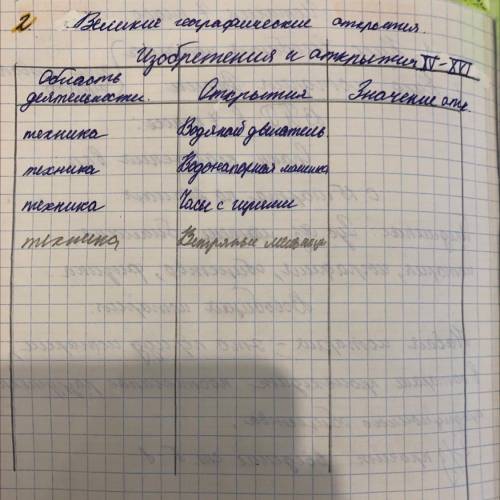 2. Великие географические открытия.
Изобретения и открытия XV-XVI
Область деятельности. Открытия Значение отк.
техника Водяной двигатель
техника Водонапорная машина
техника Часы с гирями
техника Ветряные мельницы